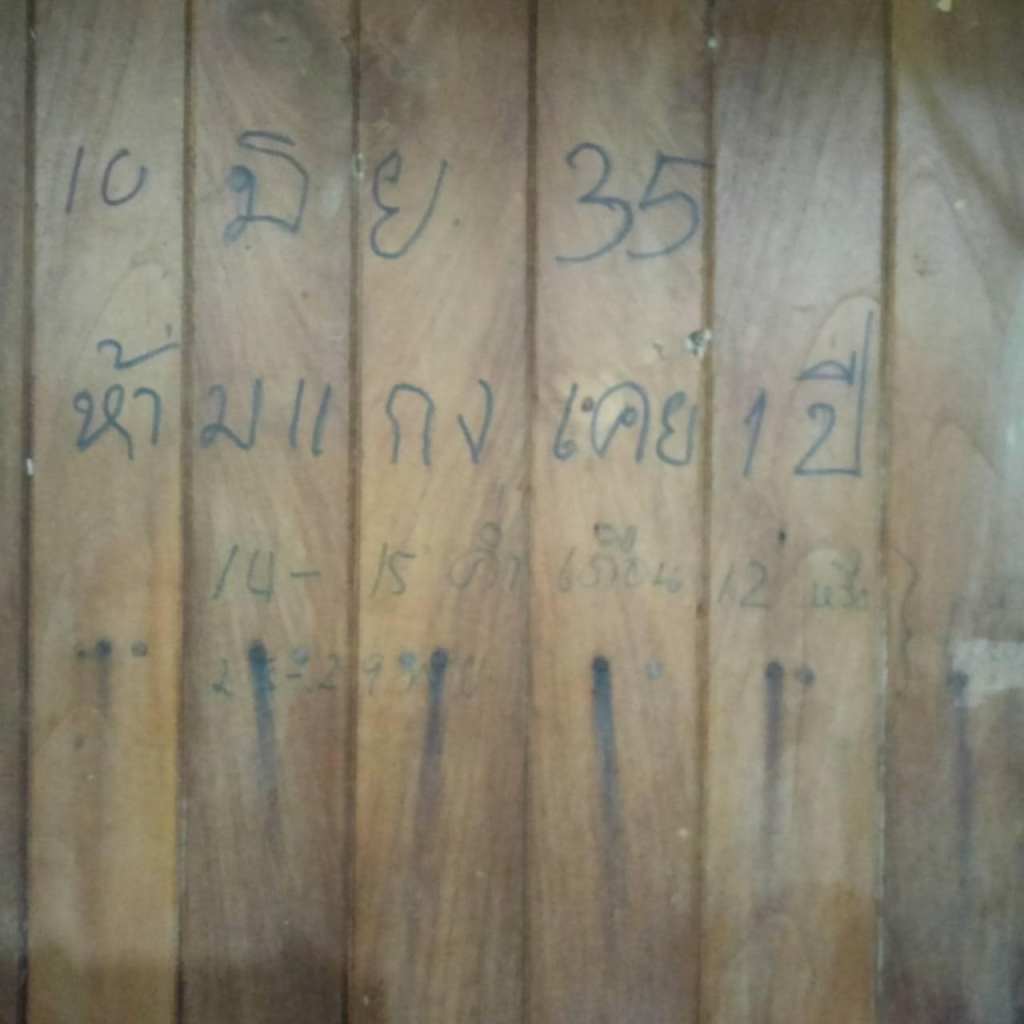 10 มิย 35
ห้ามแกงเคย 1 ปี
14 - 15 ค่ำ เดือน 12